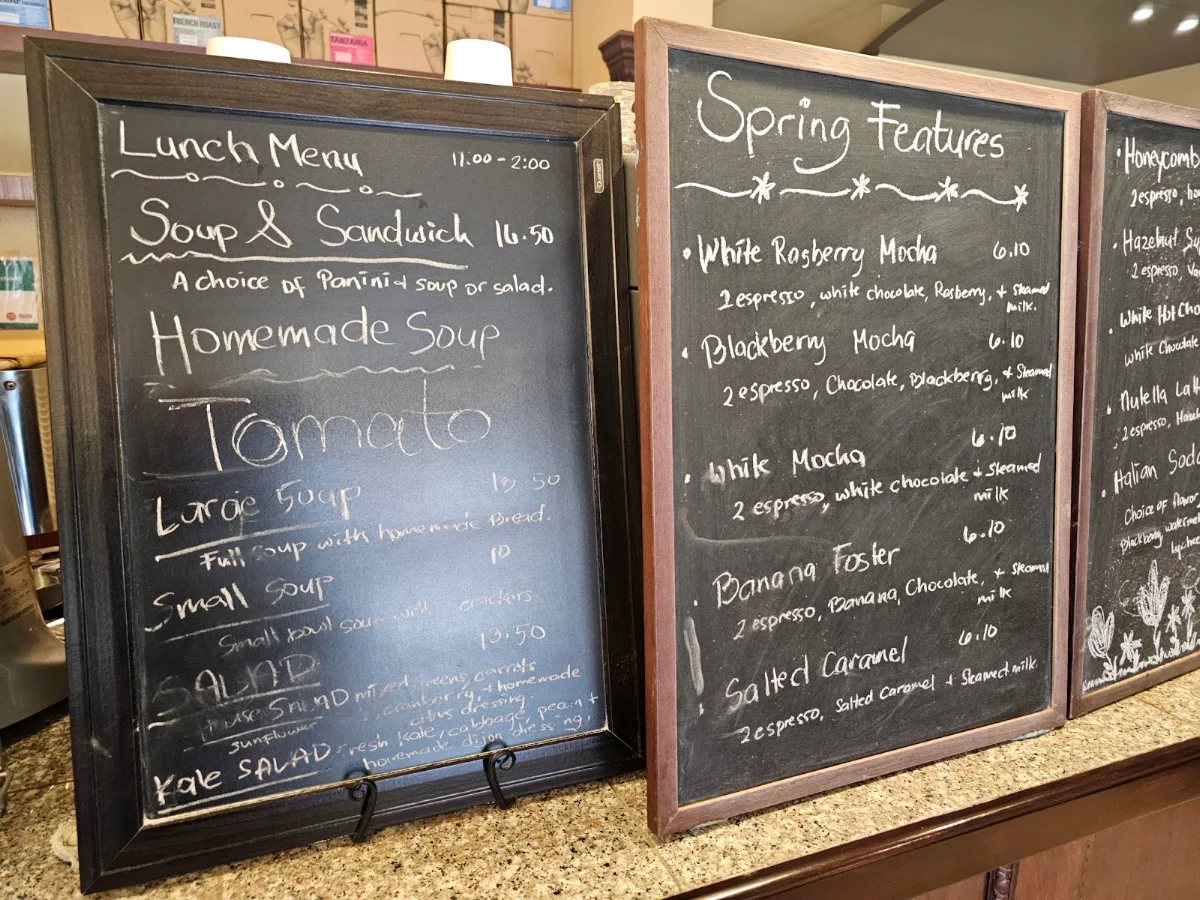 FRENCH ROAST
TANZANIA
Lunch Menu 11:00-2:00
Soup & Sandwich 16.50
A choice of Panini + soup or salad.
Homemade Soup
Tomato
Large Soup
Full soup with homemade Bread.
10
Small Soup
Small bowl soup with crackers
13.50
SALAD
House SALAD mixed greens, carrots
cranberry + homemade
sunflower citrus dressing
Kale SALAD fresh kale, cabbage, pecan +
homemade dijon dressing.
Quartet
Spring Features
• White Rasberry Mocha 6.10
2 espresso, white chocolate, Rasberry, + Steamed
milk.
• Blackberry Mocha 6.10
2 espresso, Chocolate, Blackberry, + Steamed
milk
6.10
• White Mocha
2 espresso, white chocolate + Steamed
milk
6.10
• Banana Foster
2 espresso, Banana, Chocolate, + Steamed
milk
• Salted Caramel 6.10
2 espresso, Salted Caramel + Steamed milk.
• Honeycomb
2 espresso, ho
• Hazelnut
2 espresso Va
• White Hot Cho
white Chocolate
• Nutella Lat
2 espresso, Haze
• Italian Soda
Choice of flavor
Blackberry
lychee